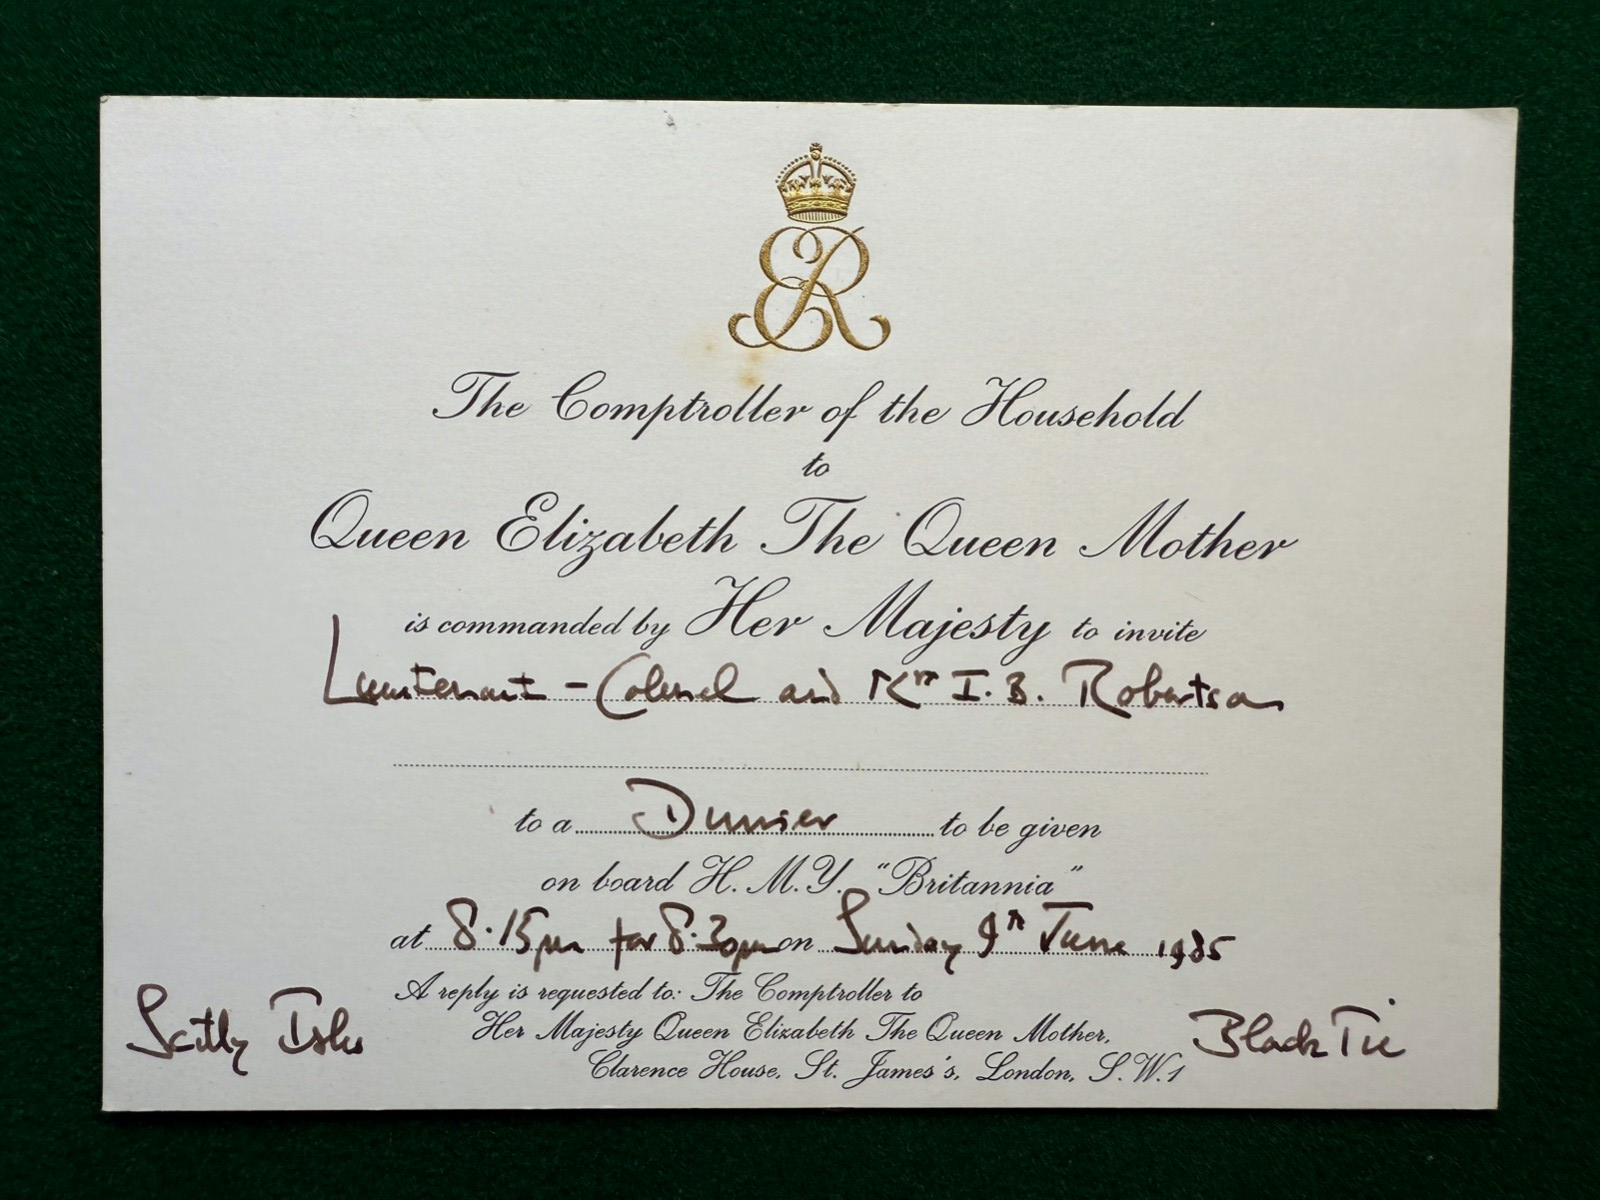 ER
The Comptroller of the Household
to
Queen Elizabeth The Queen Mother
is commanded by Her Majesty to invite
Lieutenant-Colonel and Mrs I.B. Robertson
to a Dinner to be given
on board H.M.Y. "Britannia"
at 8.15pm for 8.30pm on Sunday 9th June 1985
A reply is requested to: The Comptroller to
Her Majesty Queen Elizabeth The Queen Mother,
Clarence House, St. James's, London, S.W.1
Scilly Isles
Black Tie